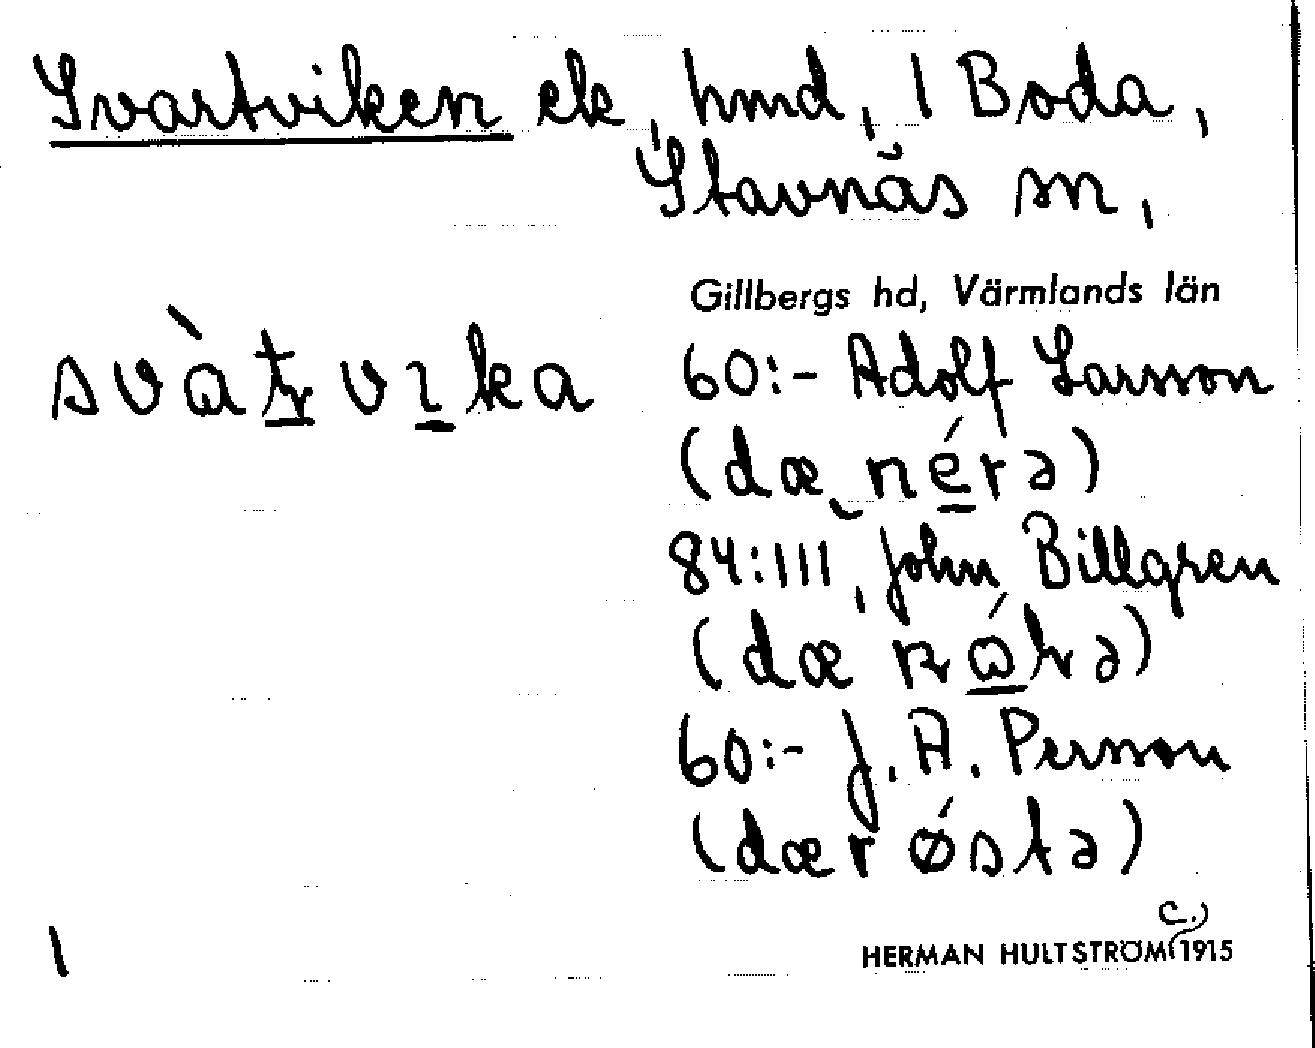 Svartviken ek, hmd, 1 Boda,
Stavnäs sn,
Gillbergs hd, Värmlands län
svàʈvɪka
60:- Adolf Larsson
(dæ néra)
84:111, John Billgren
(dæ
60:- J. A. Persson
(dær østa)
C.
HERMAN HULTSTRÖM 1915
1